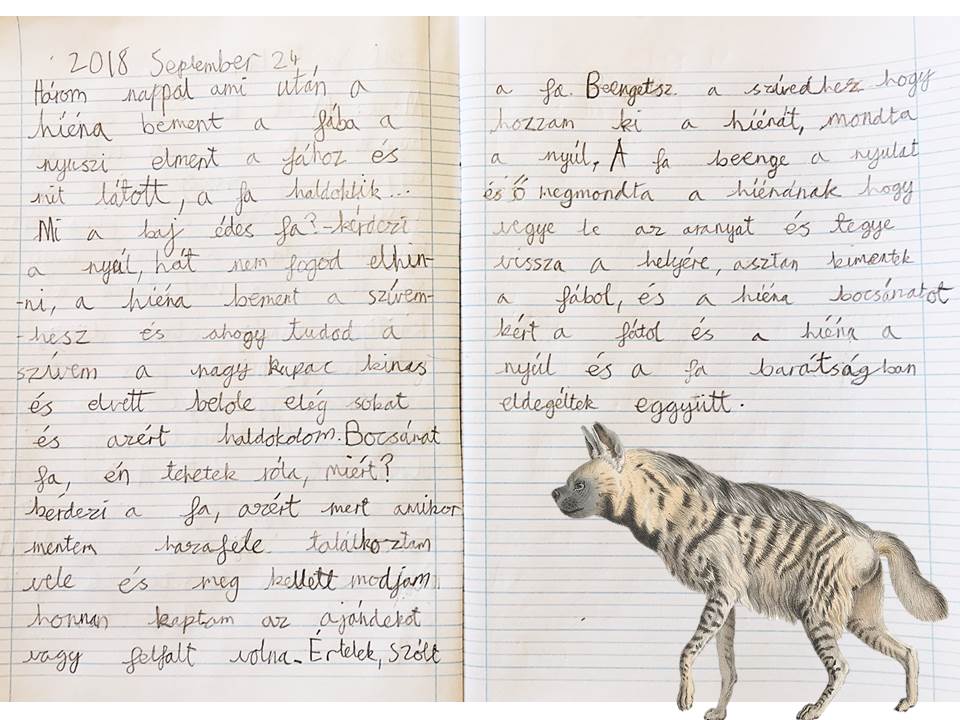 2018 September 24,
Három nappal ami után a
hiéna bement a fába a
nyuszi elment a fához és
mit látott, a fa haldoklik...
Mi a baj édes fa?-kérdezi
a nyúl, hát nem fogod elhin-
-ni, a hiéna bement a szívem-
-hesz és ahogy tudod a
szívem a nagy kupac kincs
és elvett belole elég sokat
és azért haldokolom. Bocsánat
fa, én tehetek róla, miért?
kérdezi a fa, azért mert amikor
mentem hazafele találkoztam
vele és meg kellett modjam
honnan kaptam az ajándékot
vagy felfalt volna. Értelek, szólt
a fa. Beengetsz a szívedhez hogy
hozzam ki a hiénát, mondta
a nyúl, A fa beenge a nyulat
és Ő megmondta a hiénának hogy
vegye le az aranyat és tegye
vissza a helyére, asztan kimentek
a fábol, és a hiéna bocsánatot
kért a fátol és a hiéna a
nyúl és a fa barátságban
eldegéltek eggyütt.